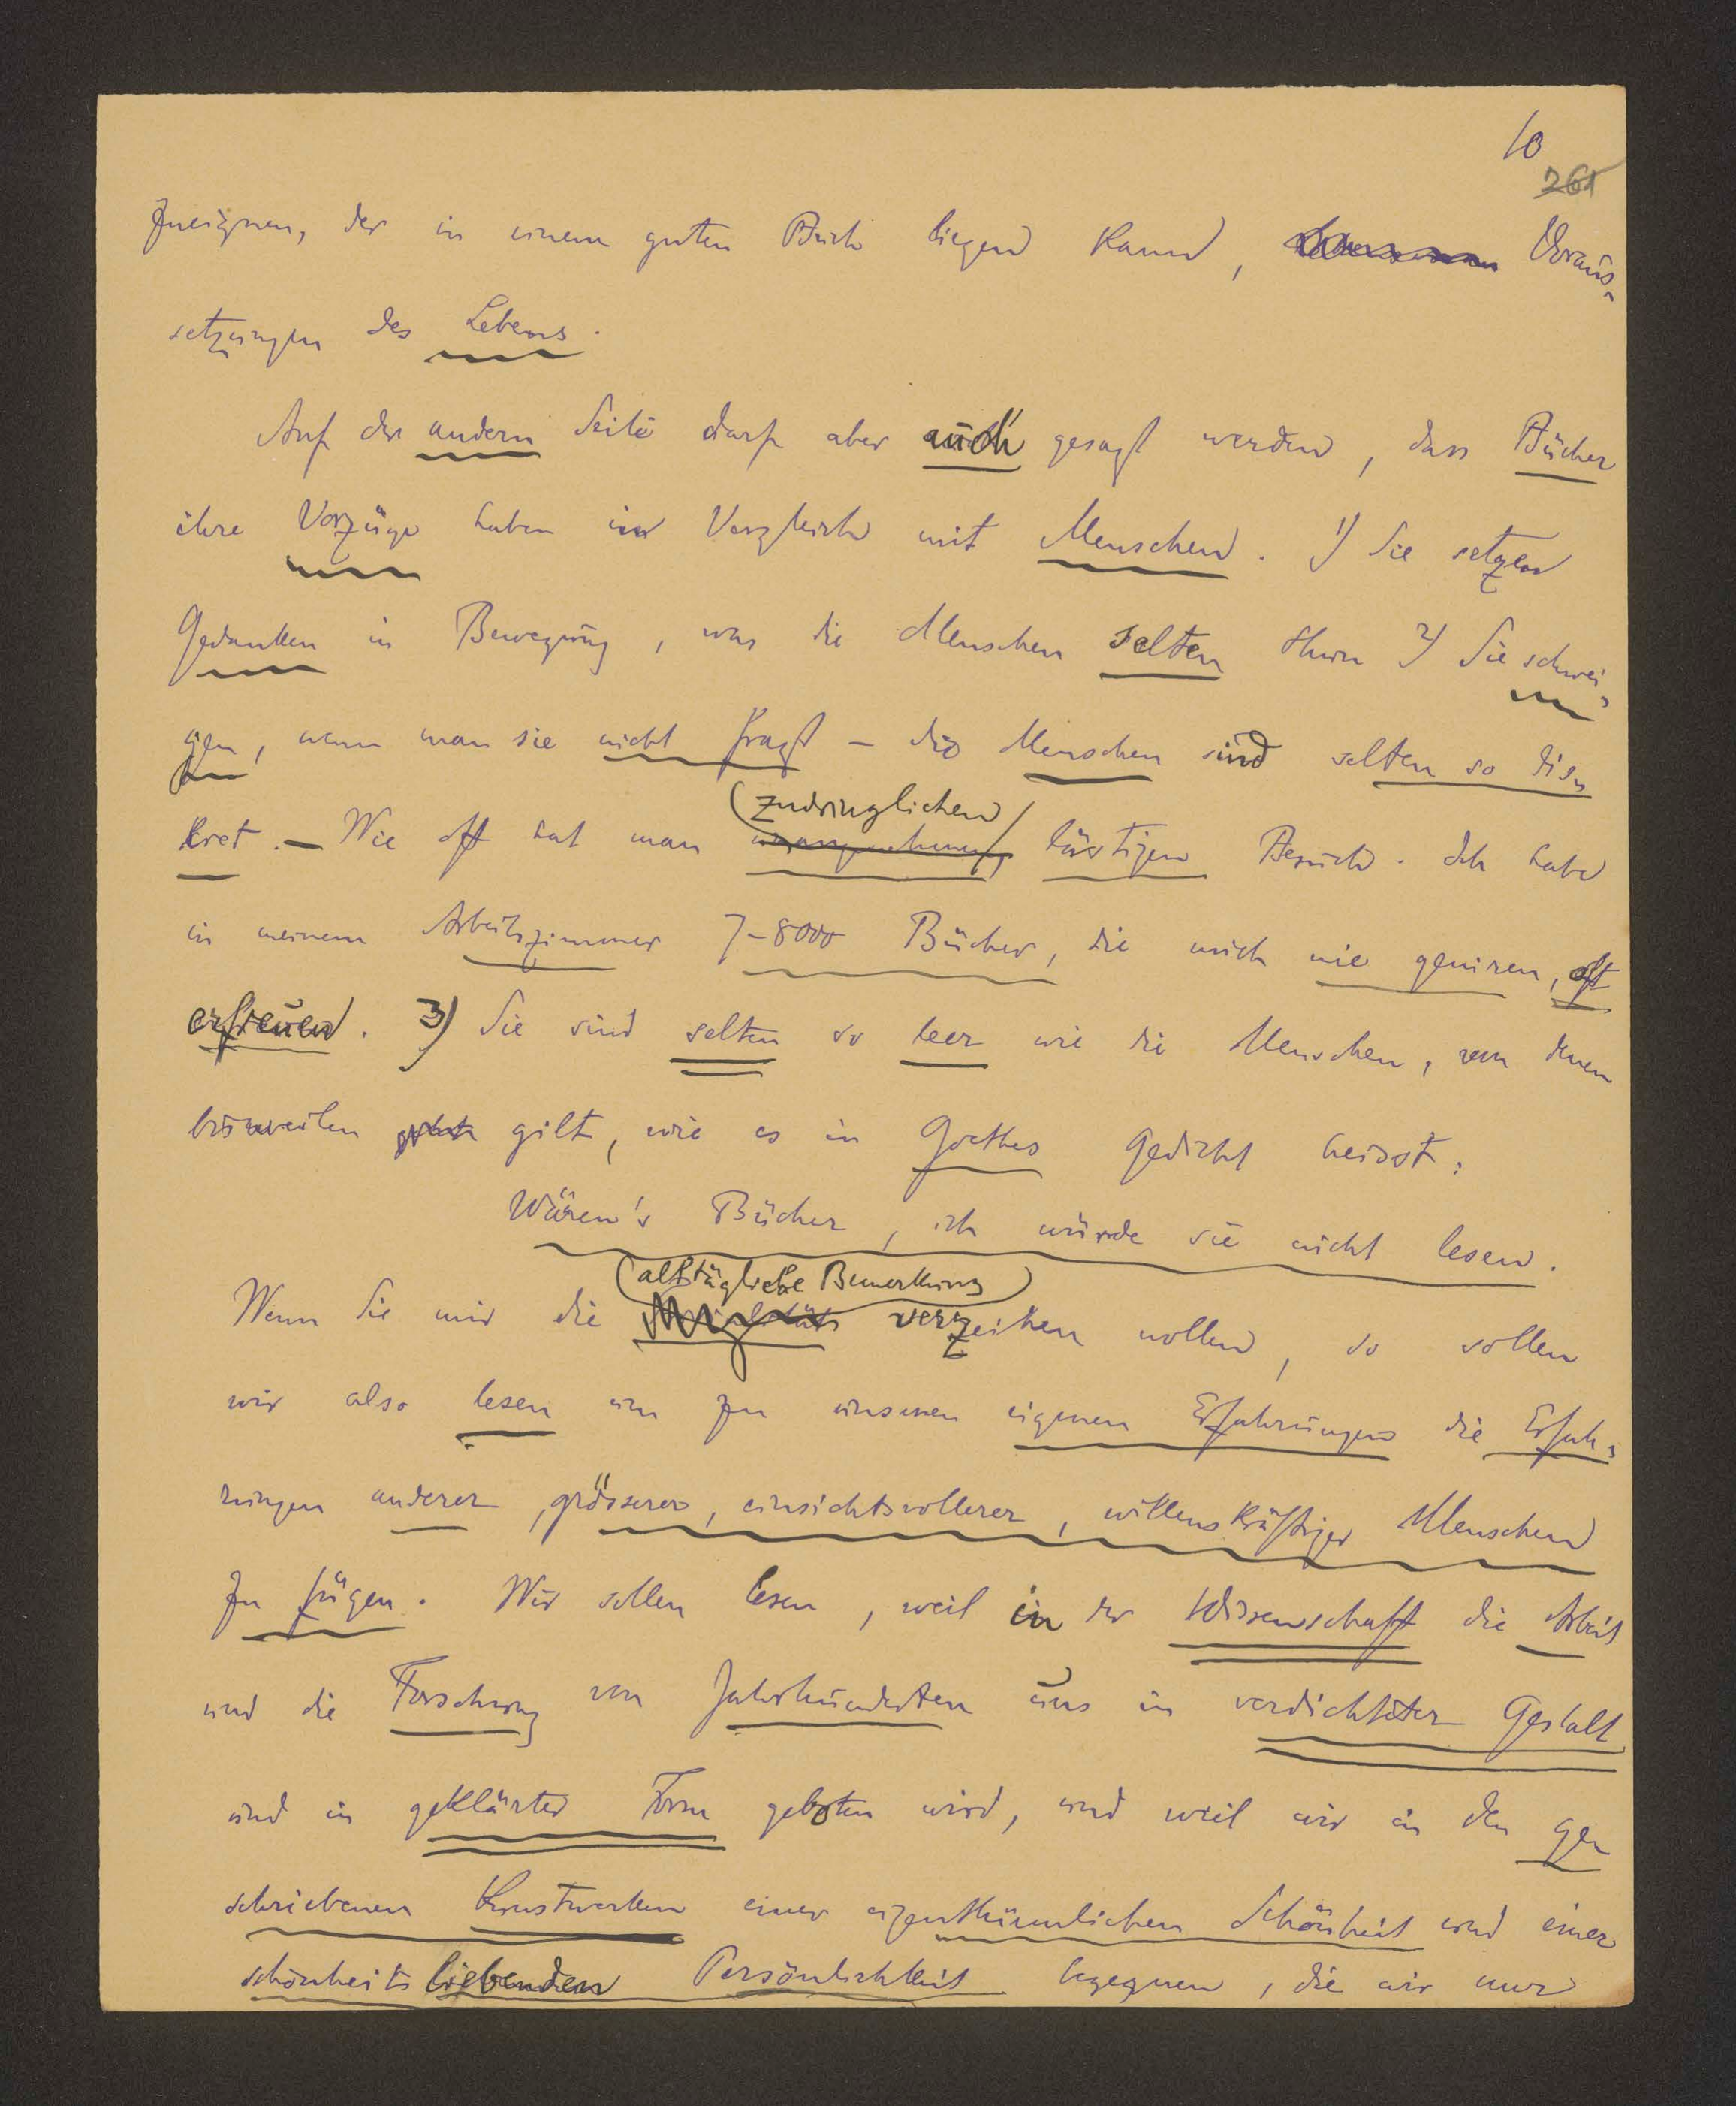 10
261
zueignen, der in einem guten Buch liegen kann, Voraus-
setzungen des Lebens.
Auf der andern Seite darf aber auch gesagt werden, dass Bücher
ihre Vorzüge haben im Vergleich mit Menschen. 1) Sie setzen
Gedanken in Bewegung, was die Menschen selten thun 2) Sie schwei-
gen, wenn man sie nicht fragt – die Menschen sind selten so dis-
kret. – Wie oft hat man
(zudringlichen)
unangenehmen, lästigen Besuch. Ich habe
in meinem Arbeitszimmer 7-8000 Bücher, die mich nie geniren, oft
erfreuen. 3) Sie sind selten so leer wie die Menschen, von denen
bisweilen gilt, wie es in Goethes Gedicht heisst:
Wären's Bücher, ich würde sie nicht lesen.
(alltägliche Bemerkung)
Wenn Sie mir die verzeihen wollen, so sollen
wir also lesen um zu unseren eigenen Erfahrungen die Erfah-
rungen anderer, grösserer, einsichtsvollerer, willenskräftiger Menschen
zu fügen. Wir sollen lesen, weil in der Wissenschaft die Arbeit
und die Forschung von Jahrhunderten uns in verdichteter Gestalt
und in geklärter Form geboten wird, und weil wir in den ge-
schriebenen Kunstwerken einer eigenthümlichen Schönheit und einer
schönheitsliebenden Persönlichkeit begegnen, die wir nur